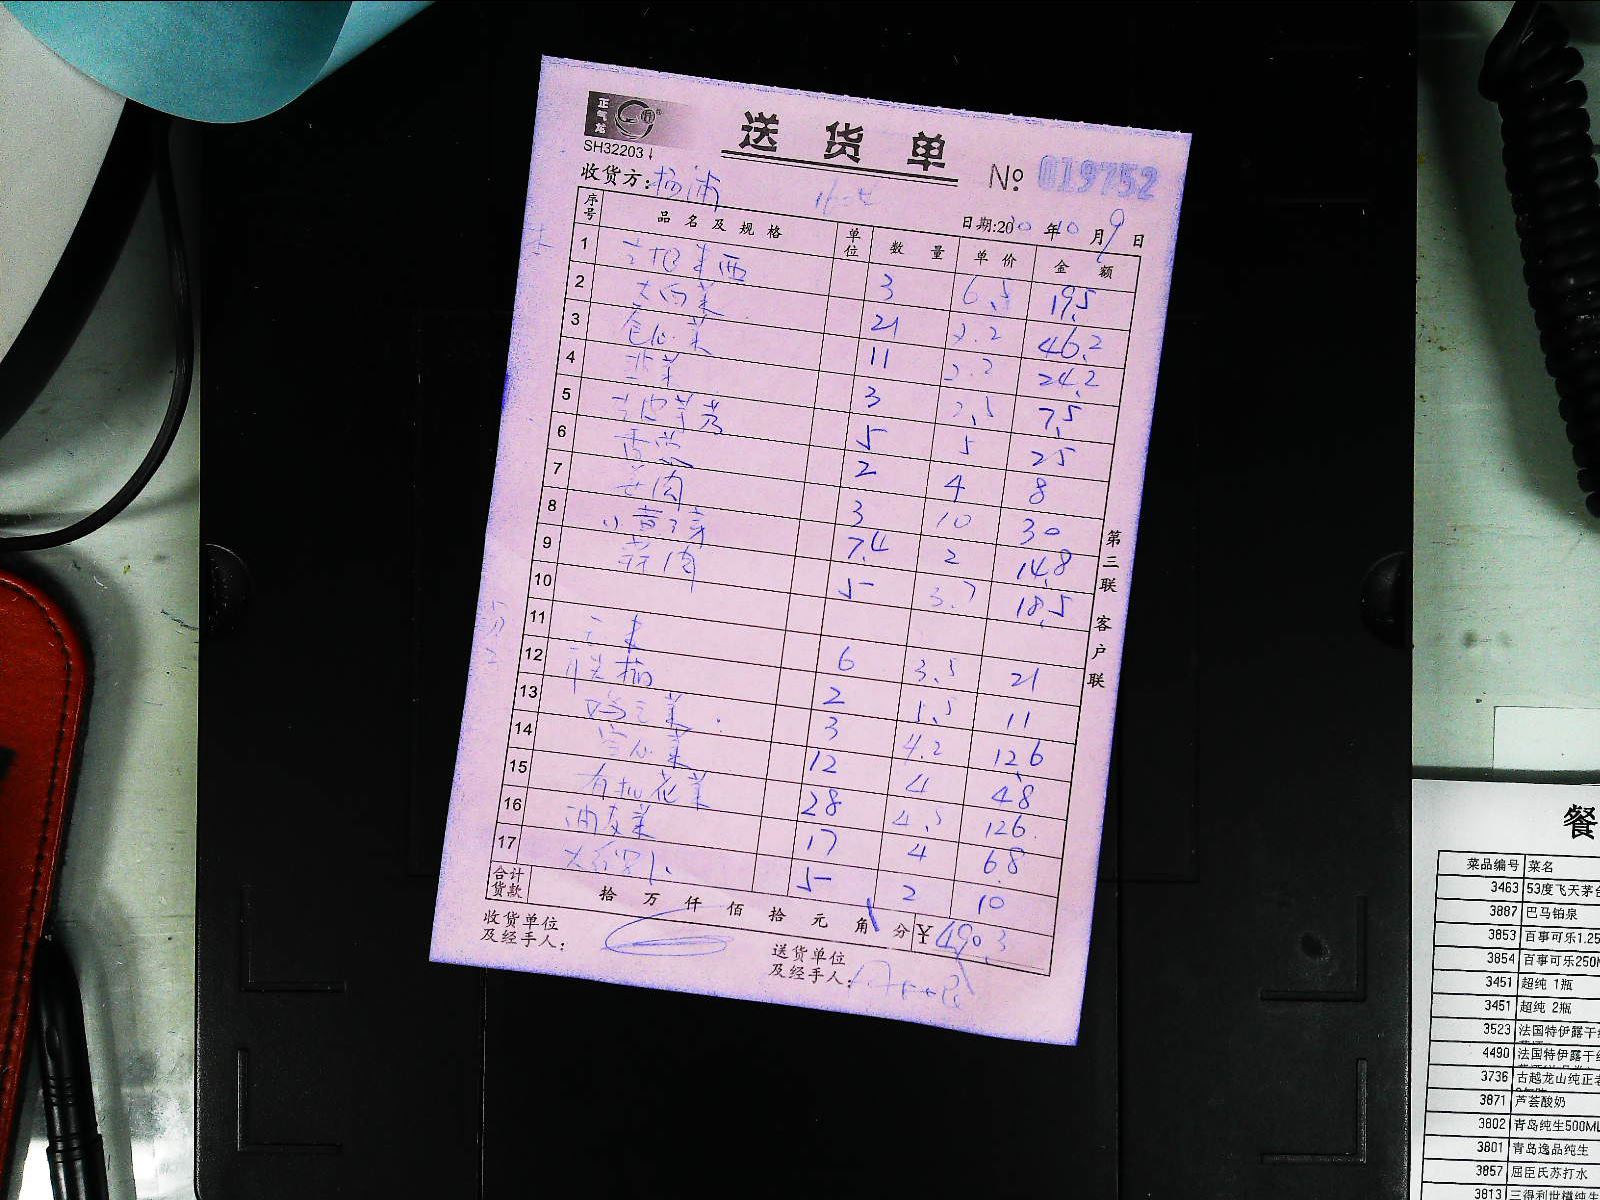 正气龙
SH32203
送货单
No 019752
收货方:杨浦
日期:2010年10月9日
序号 品名及规格 单位 数量 单价 金额
1 3 6.5 19.5
2 大白菜 21 2.2 46.2
3 卷心菜 11 2.2 24.2
4 韭菜 3 2.5 7.5
5 5 5 25
6 香葱 2 4 8
7 姜肉 3 10 30
8 小黄豆芽 7.4 2 14.8
9 蒜肉 5 3.7 18.5
10
11 6 3.5 21
12 2 5.5 11
13 鸡毛菜 3 4.2 12.6
14 空心菜 12 4 48
15 有机花菜 28 4.5 126
16 油麦菜 17 4 68
17 5 2 10
合计货款 拾 万 仟 佰 拾 元 角 分 ¥490.3
收货单位及经手人:
送货单位及经手人:
第三联 客户联
餐
菜品编号 菜名
3463 53度飞天茅台
3887 巴马铂泉
3853 百事可乐1.25
3854 百事可乐250M
3451 超纯 1瓶
3451 超纯 2瓶
3523 法国特伊露干红
4490 法国特伊露干红
3736 古越龙山纯正老
3871 芦荟酸奶
3802 青岛纯生500ML
3801 青岛逸品纯生
3857 屈臣氏苏打水
3813 三得利世博纯生